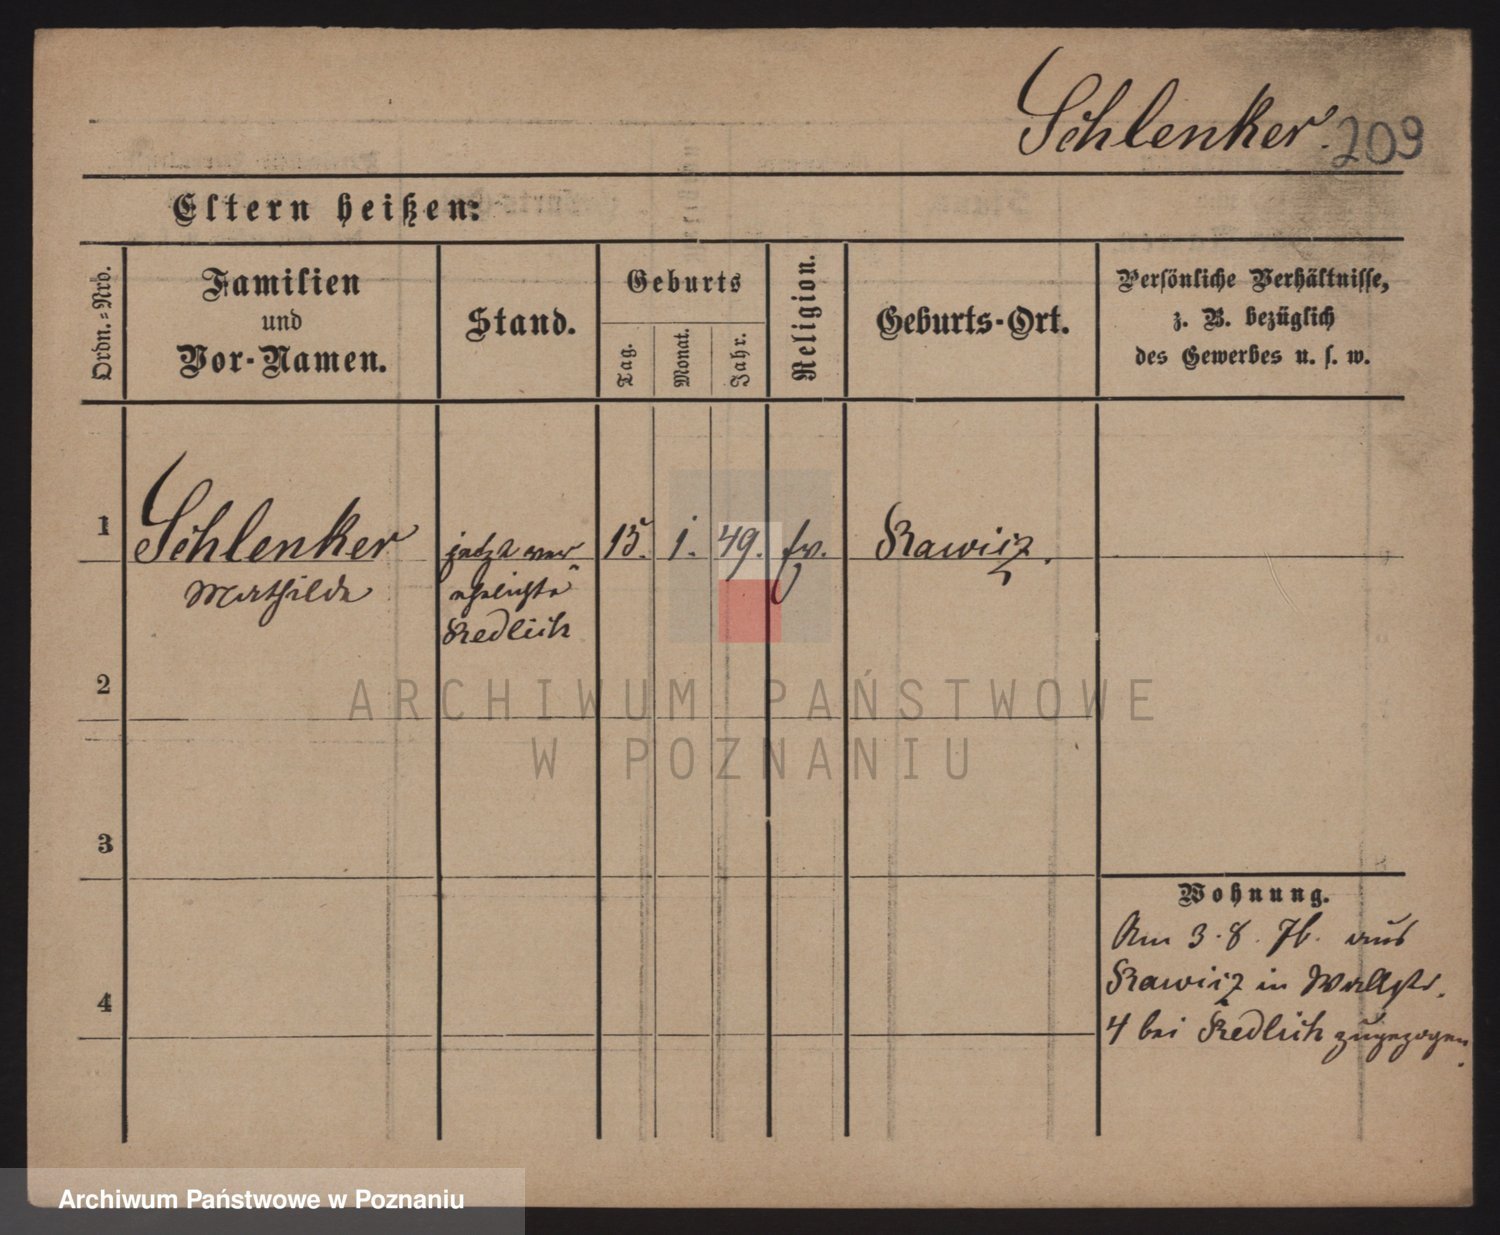 Schlenker. 209
Eltern heißen:
Ordn.-Nro.
Familien
und
Vor-Namen.
Stand.
Geburts
Tag.
Monat.
Jahr.
Religion.
Geburts-Ort.
Persönliche Verhältnisse,
z. B. bezüglich
des Gewerbes u. s. w.
1
Schlenker
Mathilde
jetzt ver
ehelichte
Redlich
15.
1.
49.
Rawicz.
2
3
4
Wohnung.
Am 3.8.76. aus
Rawicz in Wallstr.
4 bei Redlich zugezogen.
ARCHIWUM PAŃSTWOWE
W POZNANIU
Archiwum Państwowe w Poznaniu